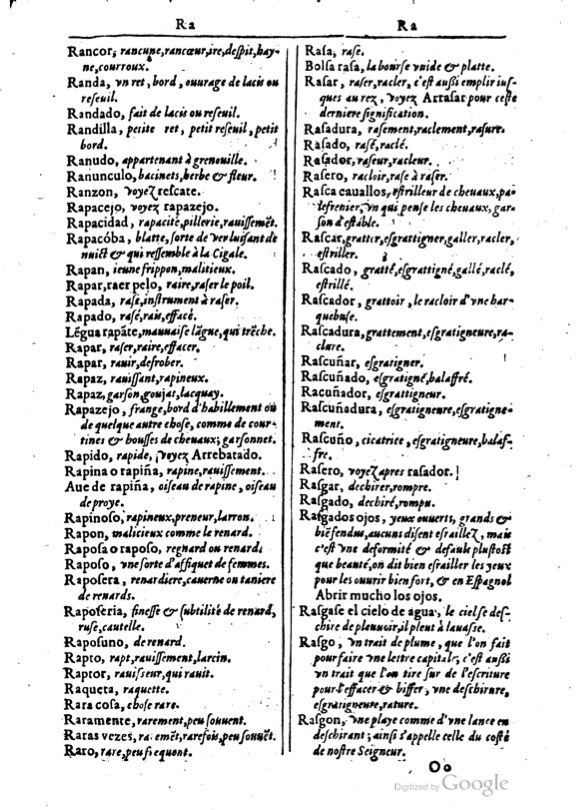 Ra
Rancor, rancune, rancœur, ire, despit, hay-
ne, courroux.
Randa, vn ret, bord, ouurage de lacis ou
reseuil.
Randado, fait de lacis ou reseuil.
Randilla, petite ret, petit reseuil, petit
bord.
Ranudo, appartenant à grenouille.
Ranunculo, bacinets, herbe & fleur.
Ranzon, voyez rescate.
Rapacejo, voyez rapazejo.
Rapacidad, rapacité, pillerie, rauissemẽt.
Rapacóba, blatte, sorte de ver luisant de
nuict & qui ressemble à la Cigale.
Rapan, ieune frippon, malitieux.
Rapar, raer pelo, raire, raser le poil.
Rapada, rase, instrument à raser.
Rapado, rasé, rais, effacé.
Lẽgua rapãte, mauuaise lãgue, qui trẽche.
Rapar, raser, raire, effacer.
Rapar, rauir, desrober.
Rapaz, rauissant, rapineux.
Rapaz, garson, goujat, lacquay.
Rapazejo, frange, bord d'habillement ou
de quelque autre chose, comme de cour-
tines & housses de cheuaux; garsonnet.
Rapido, rapide, voyez Arrebatado.
Rapina o rapiña, rapine, rauissement.
Aue de rapiña, oiseau de rapine, oiseau
de proye.
Rapinoso, rapineux, preneur, larron.
Rapon, malicieux comme le renard.
Raposa o raposo, regnard ou renard.
Raposo, vne sorte d'affiquet de femmes.
Raposera, renardiere, cauerne ou taniere
de renards.
Raposeria, finesse & subtilité de renard,
ruse, cautelle.
Raposuno, de renard.
Rapto, rapt, rauissement, larcin.
Raptor, rauisseur, qui rauit.
Raqueta, raquette.
Rara cosa, chose rare.
Raramente, rarement, peu souuent.
Raras vezes, raremẽt, rarefois, peu souuẽt.
Raro, rare, peu frequent.
Ra
Rasa, rase.
Bolsa rasa, la bourse vuide & platte.
Rasar, raser, racler, c'est aussi emplir ius-
ques au rez, voyez Arrasar pour ceste
derniere signification.
Rasadura, rasement, raclement, rasure.
Rasado, rasé, raclé.
Rasador, raseur, racleur.
Rasero, racloir, rase à raser.
Rasca cauallos, estrilleur de cheuaux, pa-
lefrenier, vn qui pense les cheuaux, gar-
son d'estable.
Rascar, gratter, esgrattigner, galler, racler,
estriller.
Rascado, gratté, esgrattigné, gallé, raclé,
estrillé.
Rascador, grattoir, le racloir d'vne har-
quebuse.
Rascadura, grattement, esgratigneure, ra-
clure.
Rascuñar, esgratigner.
Rascuñado, esgratigné, balaffré.
Racuñador, esgrattigneur.
Rascuñadura, esgratigneure, esgratigne-
ment.
Rascuño, cicatrice, esgratigneure, balaf-
fre.
Rasero, voyez apres rasador.
Rasgar, deschirer, rompre.
Rasgado, dechiré, rompu.
Rasgados ojos, yeux ouuerts, grands &
biẽ fendus, aucuns disent esraillez, mais
c'est vne deformité & defaut plustost
que beauté, on dit bien esrailler les yeux
pour les ouurir bien fort, & en Espagnol
Abrir mucho los ojos.
Rasgase el cielo de agua, le ciel se des-
chire de pleuuoir, il pleut à lauasse.
Rasgo, vn trait de plume, que l'on fait
pour faire vne lettre capitale, c'est aussi
vn trait que l'on tire sur de l'escriture
pour l'effacer & biffer, vne deschirure,
esgratigneure, rature.
Rasgon, vne playe comme d'vne lance en
deschirant; ainsi s'appelle celle du costé
de nostre Seigneur.
Oo
Digitized by Google